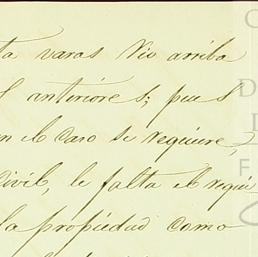 ta varas Rio arriba
l anteriores; pues
en el caso se requiere,
Civil, le falta el requi
la propiedad como